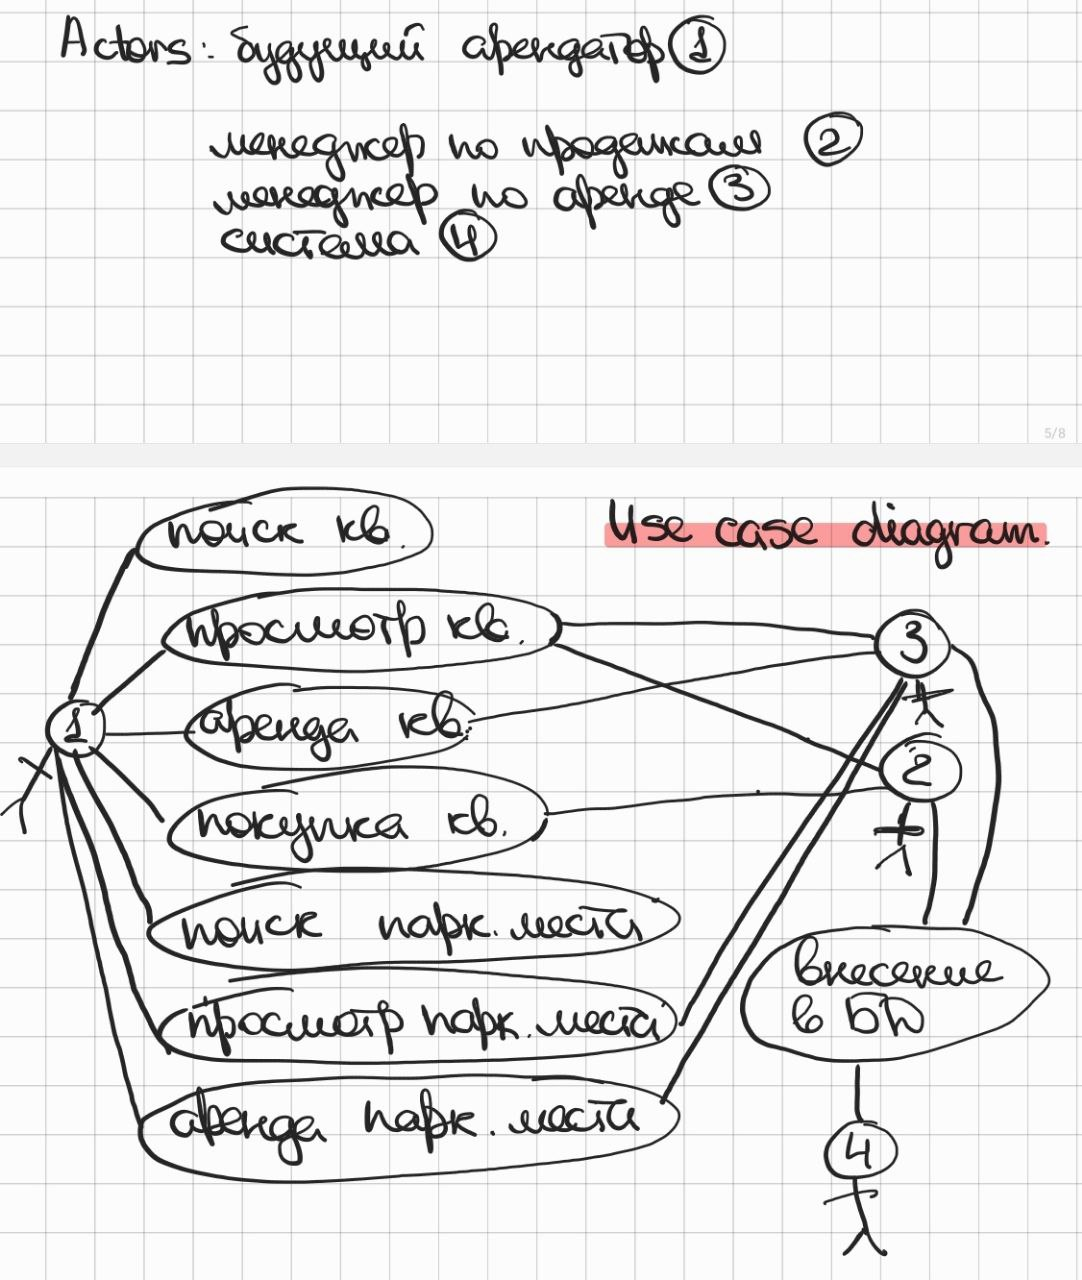 Actors: будущий арендатор 1
менеджер по продажам 2
менеджер по аренде 3
система 4
5/8
Use case diagram.
поиск кв.
просмотр кв.
3
1
аренда кв.
2
покупка кв.
поиск парк. места
внесение
в БД
просмотр парк. места
аренда парк. места
4